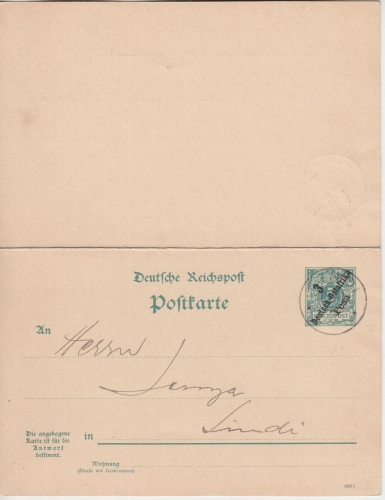 Deutsche Reichspost
Postkarte
An
Herrn
Lindi
in
Die angebogene
Karte ist für die
Antwort
bestimmt.
Wohnung
(Straße und Hausnummer)
3
REICHSPOST